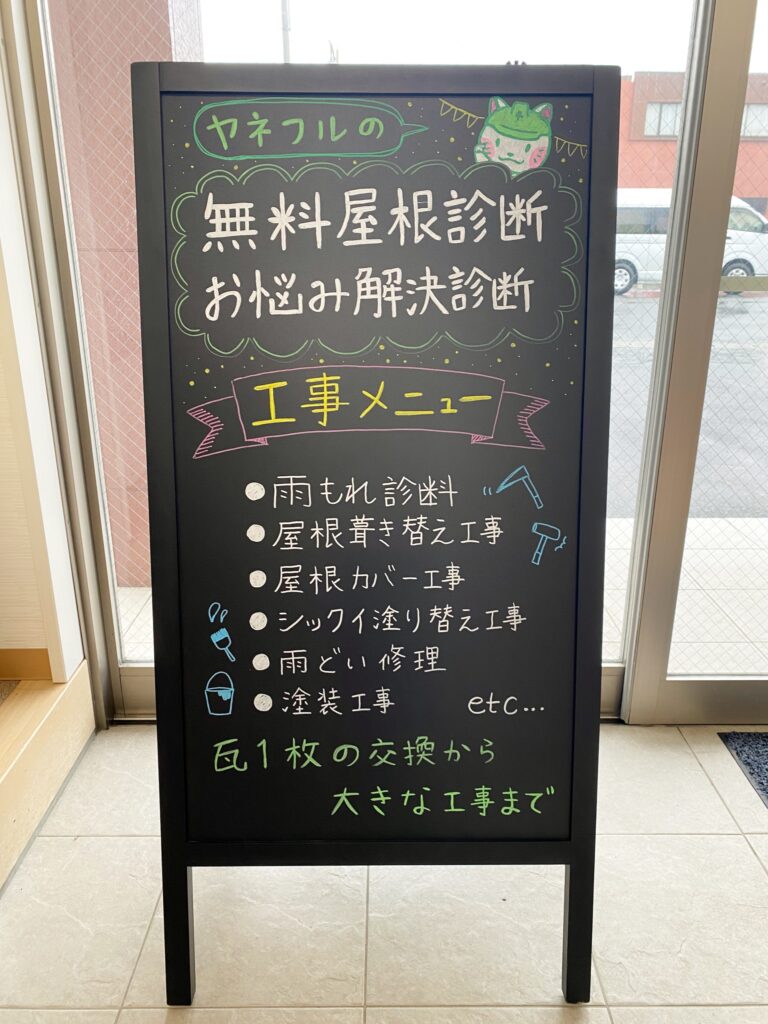 ヤネフルの
無料屋根診断
お悩み解決診断
工事メニュー
●雨もれ診料
●屋根葺き替え工事
●屋根カバー工事
●シックイ塗り替え工事
●雨どい修理
●塗装工事 etc...
瓦1枚の交換から
大きな工事まで